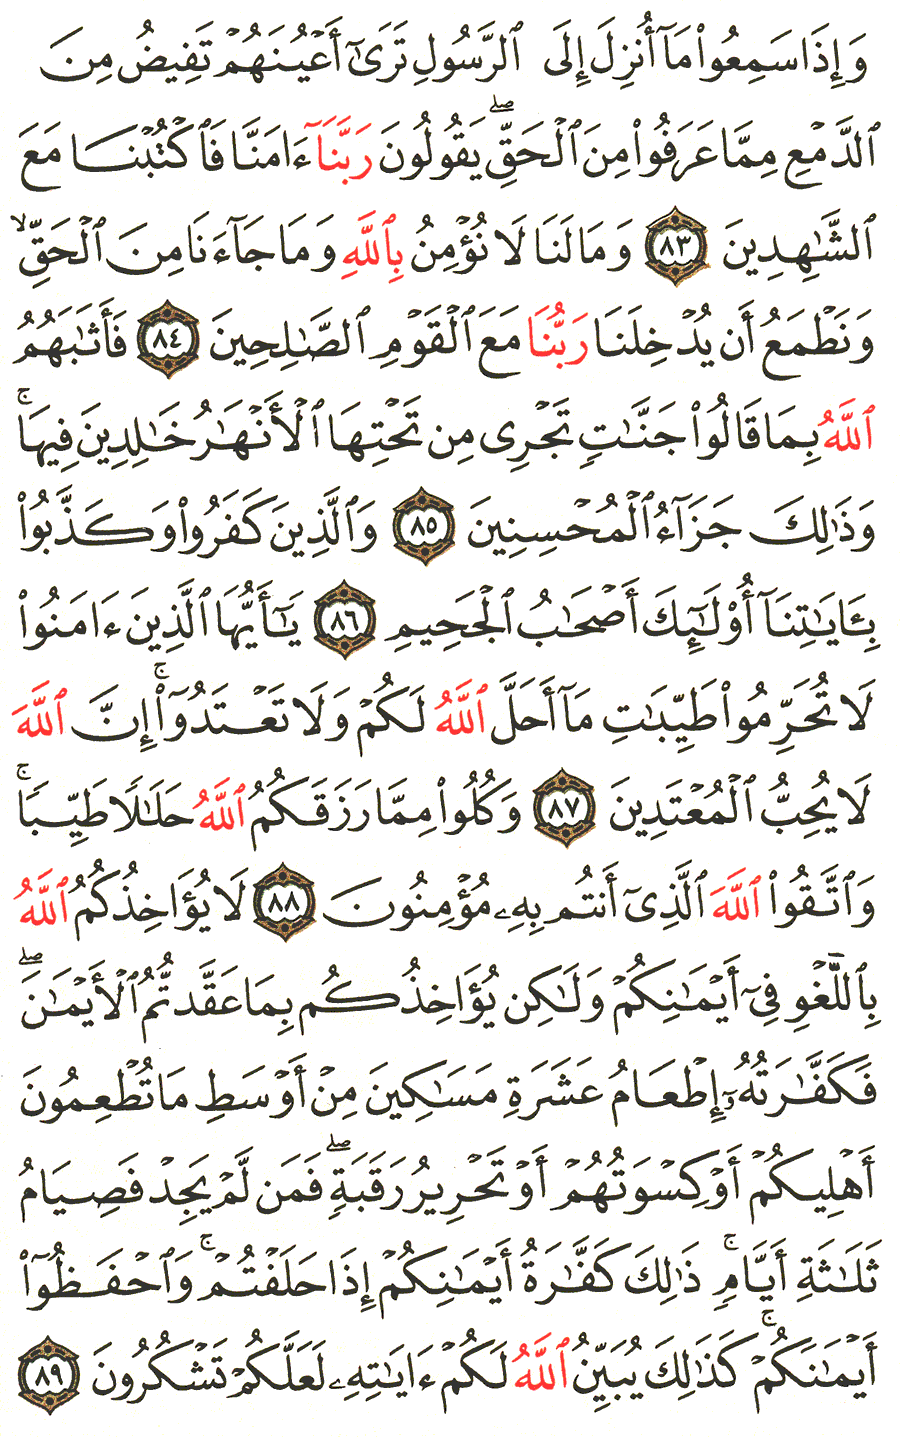 وَإِذَا سَمِعُوا۟ مَآ أُنزِلَ إِلَى ٱلرَّسُولِ تَرَىٰٓ أَعْيُنَهُمْ تَفِيضُ مِنَ
ٱلدَّمْعِ مِمَّا عَرَفُوا۟ مِنَ ٱلْحَقِّ ۖ يَقُولُونَ رَبَّنَآ ءَامَنَّا فَٱكْتُبْنَا مَعَ
ٱلشَّـٰهِدِينَ ٨٣ وَمَا لَنَا لَا نُؤْمِنُ بِٱللَّهِ وَمَا جَآءَنَا مِنَ ٱلْحَقِّ ۙ
وَنَطْمَعُ أَن يُدْخِلَنَا رَبُّنَا مَعَ ٱلْقَوْمِ ٱلصَّـٰلِحِينَ ٨٤ فَأَثَـٰبَهُمُ
ٱللَّهُ بِمَا قَالُوا۟ جَنَّـٰتٍ تَجْرِى مِن تَحْتِهَا ٱلْأَنْهَـٰرُ خَـٰلِدِينَ فِيهَا ۚ
وَذَٰلِكَ جَزَآءُ ٱلْمُحْسِنِينَ ٨٥ وَٱلَّذِينَ كَفَرُوا۟ وَكَذَّبُوا۟
بِـَٔايَـٰتِنَآ أُو۟لَـٰٓئِكَ أَصْحَـٰبُ ٱلْجَحِيمِ ٨٦ يَـٰٓأَيُّهَا ٱلَّذِينَ ءَامَنُوا۟
لَا تُحَرِّمُوا۟ طَيِّبَـٰتِ مَآ أَحَلَّ ٱللَّهُ لَكُمْ وَلَا تَعْتَدُوٓا۟ ۚ إِنَّ ٱللَّهَ
لَا يُحِبُّ ٱلْمُعْتَدِينَ ٨٧ وَكُلُوا۟ مِمَّا رَزَقَكُمُ ٱللَّهُ حَلَـٰلًا طَيِّبًا ۚ
وَٱتَّقُوا۟ ٱللَّهَ ٱلَّذِىٓ أَنتُم بِهِۦ مُؤْمِنُونَ ٨٨ لَا يُؤَاخِذُكُمُ ٱللَّهُ
بِٱللَّغْوِ فِىٓ أَيْمَـٰنِكُمْ وَلَـٰكِن يُؤَاخِذُكُم بِمَا عَقَّدتُّمُ ٱلْأَيْمَـٰنَ ۖ
فَكَفَّـٰرَتُهُۥٓ إِطْعَامُ عَشَرَةِ مَسَـٰكِينَ مِنْ أَوْسَطِ مَا تُطْعِمُونَ
أَهْلِيكُمْ أَوْ كِسْوَتُهُمْ أَوْ تَحْرِيرُ رَقَبَةٍ ۖ فَمَن لَّمْ يَجِدْ فَصِيَامُ
ثَلَـٰثَةِ أَيَّامٍ ۚ ذَٰلِكَ كَفَّـٰرَةُ أَيْمَـٰنِكُمْ إِذَا حَلَفْتُمْ ۚ وَٱحْفَظُوٓا۟
أَيْمَـٰنَكُمْ ۚ كَذَٰلِكَ يُبَيِّنُ ٱللَّهُ لَكُمْ ءَايَـٰتِهِۦ لَعَلَّكُمْ تَشْكُرُونَ ٨٩